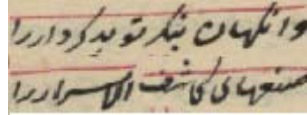 وانگهان بنگر تو بد کردار را
صنعهای کاشف الاسرار را